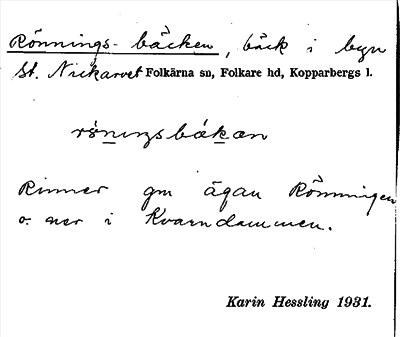 Rönnings-bäcken, bäck i byn
St. Nickarvet Folkärna sn, Folkare hd, Kopparbergs l.
Rinner gm ägan Rönningen
o. ner i Kvarndammen.
Karin Hessling 1931.